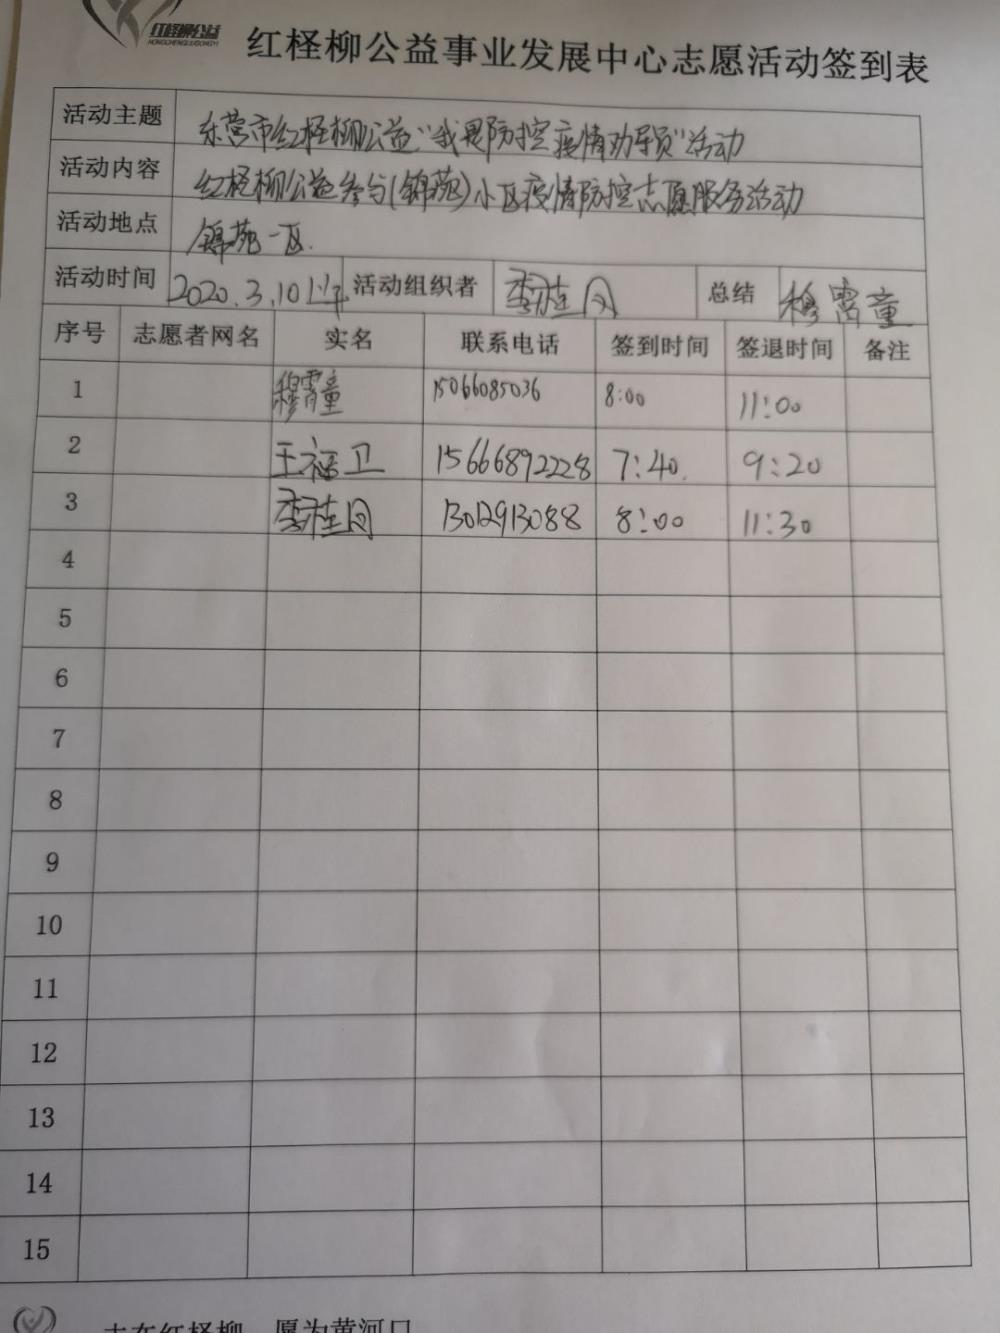 红柽柳公益
HONGCHENGLIUGONGYI
红柽柳公益事业发展中心志愿活动签到表
活动主题 东营市红柽柳公益“我是防控疫情劝导员”活动
活动内容 红柽柳公益参与(锦苑)小区疫情防控志愿服务活动
活动地点 锦苑一区.
活动时间 2020.3.10上午 活动组织者 李桂 总结 穆霄童
序号 志愿者网名 实名 联系电话 签到时间 签退时间 备注
1 穆霄童 15066085036 8:00 11:00
2 王福卫 15666892228 7:40. 9:20
3 李桂 13012913088 8:00 11:30
4
5
6
7
8
9
10
11
12
13
14
15
志在红柽柳 愿为黄河口